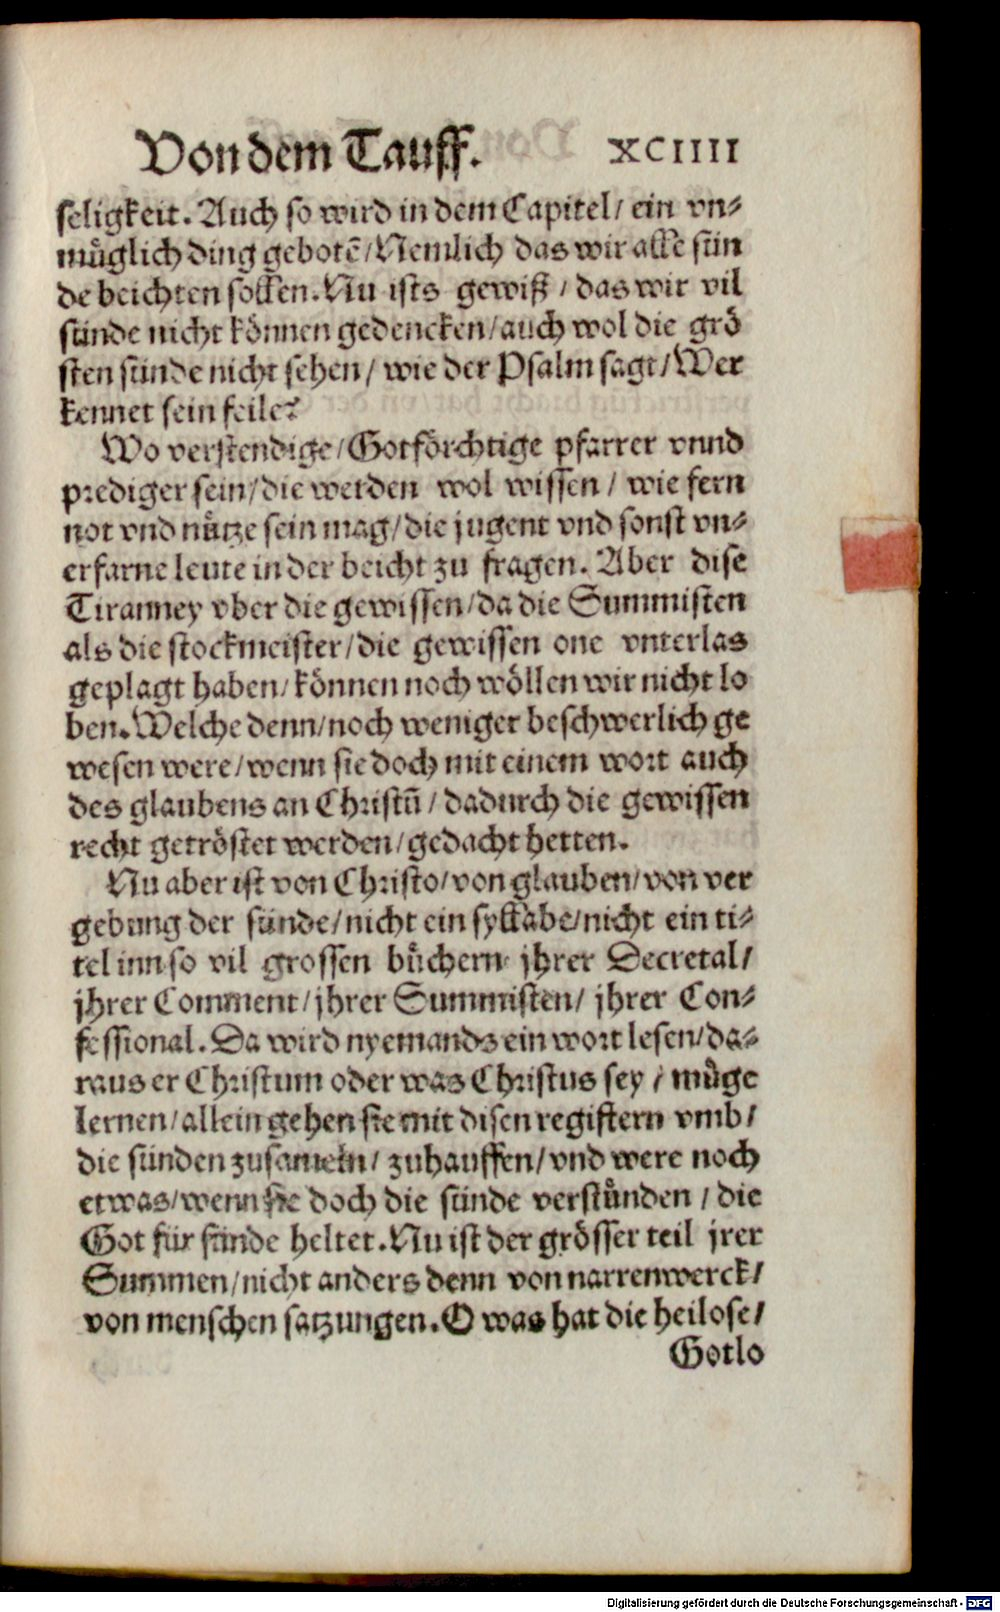 Von dem Tauff. XCIIII
seligkeit. Auch so wird in dem Capitel/ ein vn⸗
müglich ding gebotē/ Nemlich das wir alle sün
de beichten sollen. Nu ists gewiß / das wir vil
sünde nicht können gedencken/ auch wol die grö
sten sünde nicht sehen/ wie der Psalm sagt/ Wer
kennet sein feile?
Wo verstendige/ Gotförchtige pfarrer vnnd
prediger sein/ die werden wol wissen / wie fern
not vnd nütze sein mag/ die jugent vnd sonst vn⸗
erfarne leute in der beicht zu fragen. Aber dise
Tiranney vber die gewissen/ da die Summisten
als die stockmeister/ die gewissen one vnterlas
geplagt haben/ können noch wöllen wir nicht lo
ben. Welche denn/ noch weniger beschwerlich ge
wesen were/ wenn sie doch mit einem wort auch
des glaubens an Christū/ dadurch die gewissen
recht getröstet werden/ gedacht hetten.
Nu aber ist von Christo/ von glauben/ von ver
gebung der sünde/ nicht ein syllabe/ nicht ein ti⸗
tel inn so vil grossen büchern jhrer Decretal/
jhrer Comment/ jhrer Summisten/ jhrer Con⸗
fessional. Da wird nyemands ein wort lesen/ da⸗
raus er Christum oder was Christus sey / müge
lernen/ allein gehen sie mit disen registern vmb/
die sünden zusameln/ zuhauffen/ vnd were noch
etwas/ wenn sie doch die sünde verstünden / die
Got für sünde heltet. Nu ist der grösser teil jrer
Summen/ nicht anders denn von narrenwerck/
von menschen satzungen. O was hat die heilose/
Gotlo
Digitalisierung gefördert durch die Deutsche Forschungsgemeinschaft - DFG